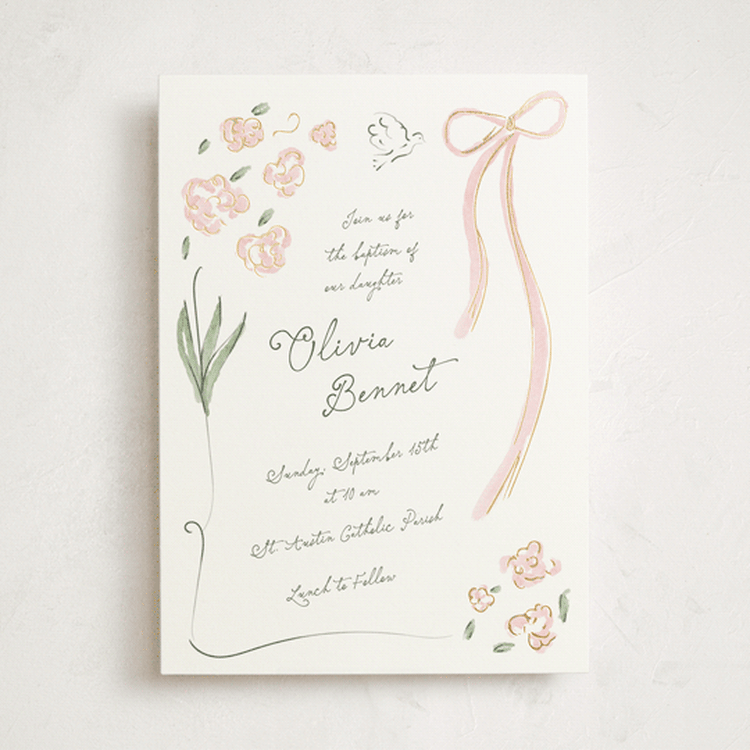 Join us for
the baptism of
our daughter
Olivia
Bennet
Sunday, September 15th
at 10 am
St. Austin Catholic Parish
Lunch to Follow